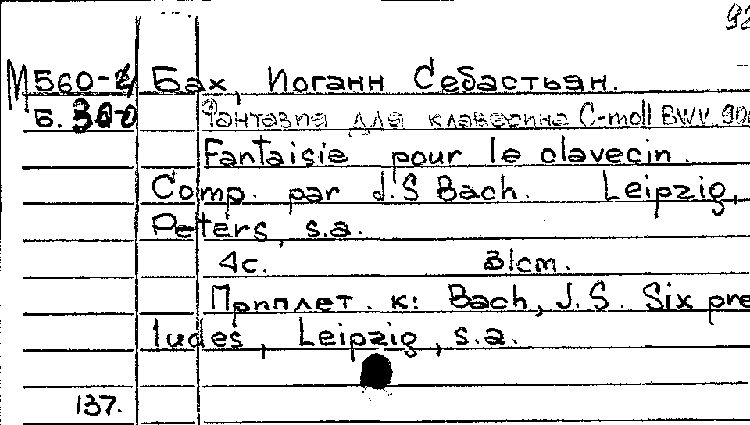 92
М560-2 Бах, Иоганн Себастьян.
Б. 300 Фантазия для клавесина C-moll BWV 906
Fantaisie pour le clavecin.
Comp. par J.S Bach. Leipzig,
Peters, s.a.
4с. 31cm.
Приплет. к: Bach, J.S. Six pre
ludes, Leipzig, s.a.
137.